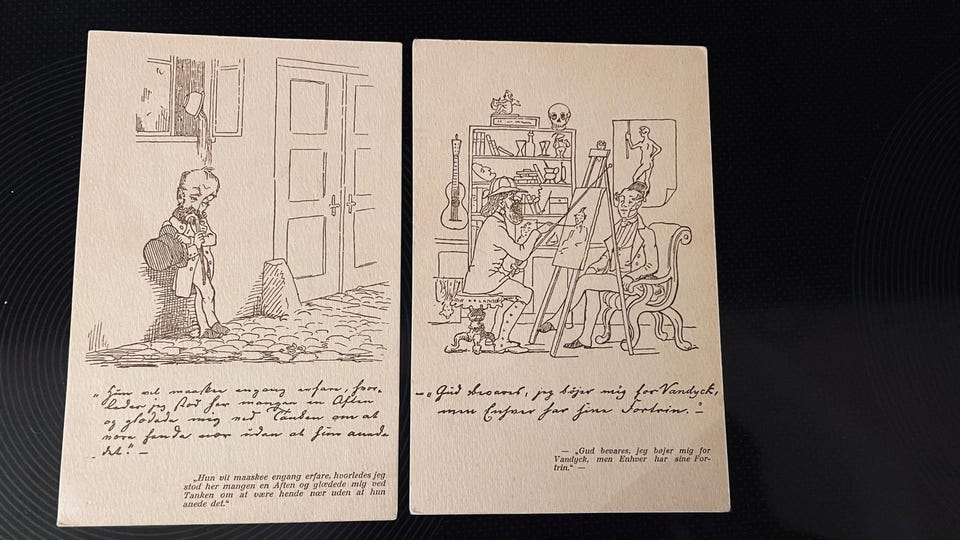 „Hun vil maaskee engang erfare, hvor-
ledes jeg stod her mangen en Aften
og glædede mig ved Tanken om at
være hende nær uden at hun anede
det.“ —
„Hun vil maaskee engang erfare, hvorledes jeg
stod her mangen en Aften og glædede mig ved
Tanken om at være hende nær uden at hun
anede det.“
— „Gud bevares, jeg böjer mig for Vandyck,
men Enhver har sine Fortrin.“ —
— „Gud bevares, jeg bøjer mig for
Vandyck, men Enhver har sine For-
trin.“ —